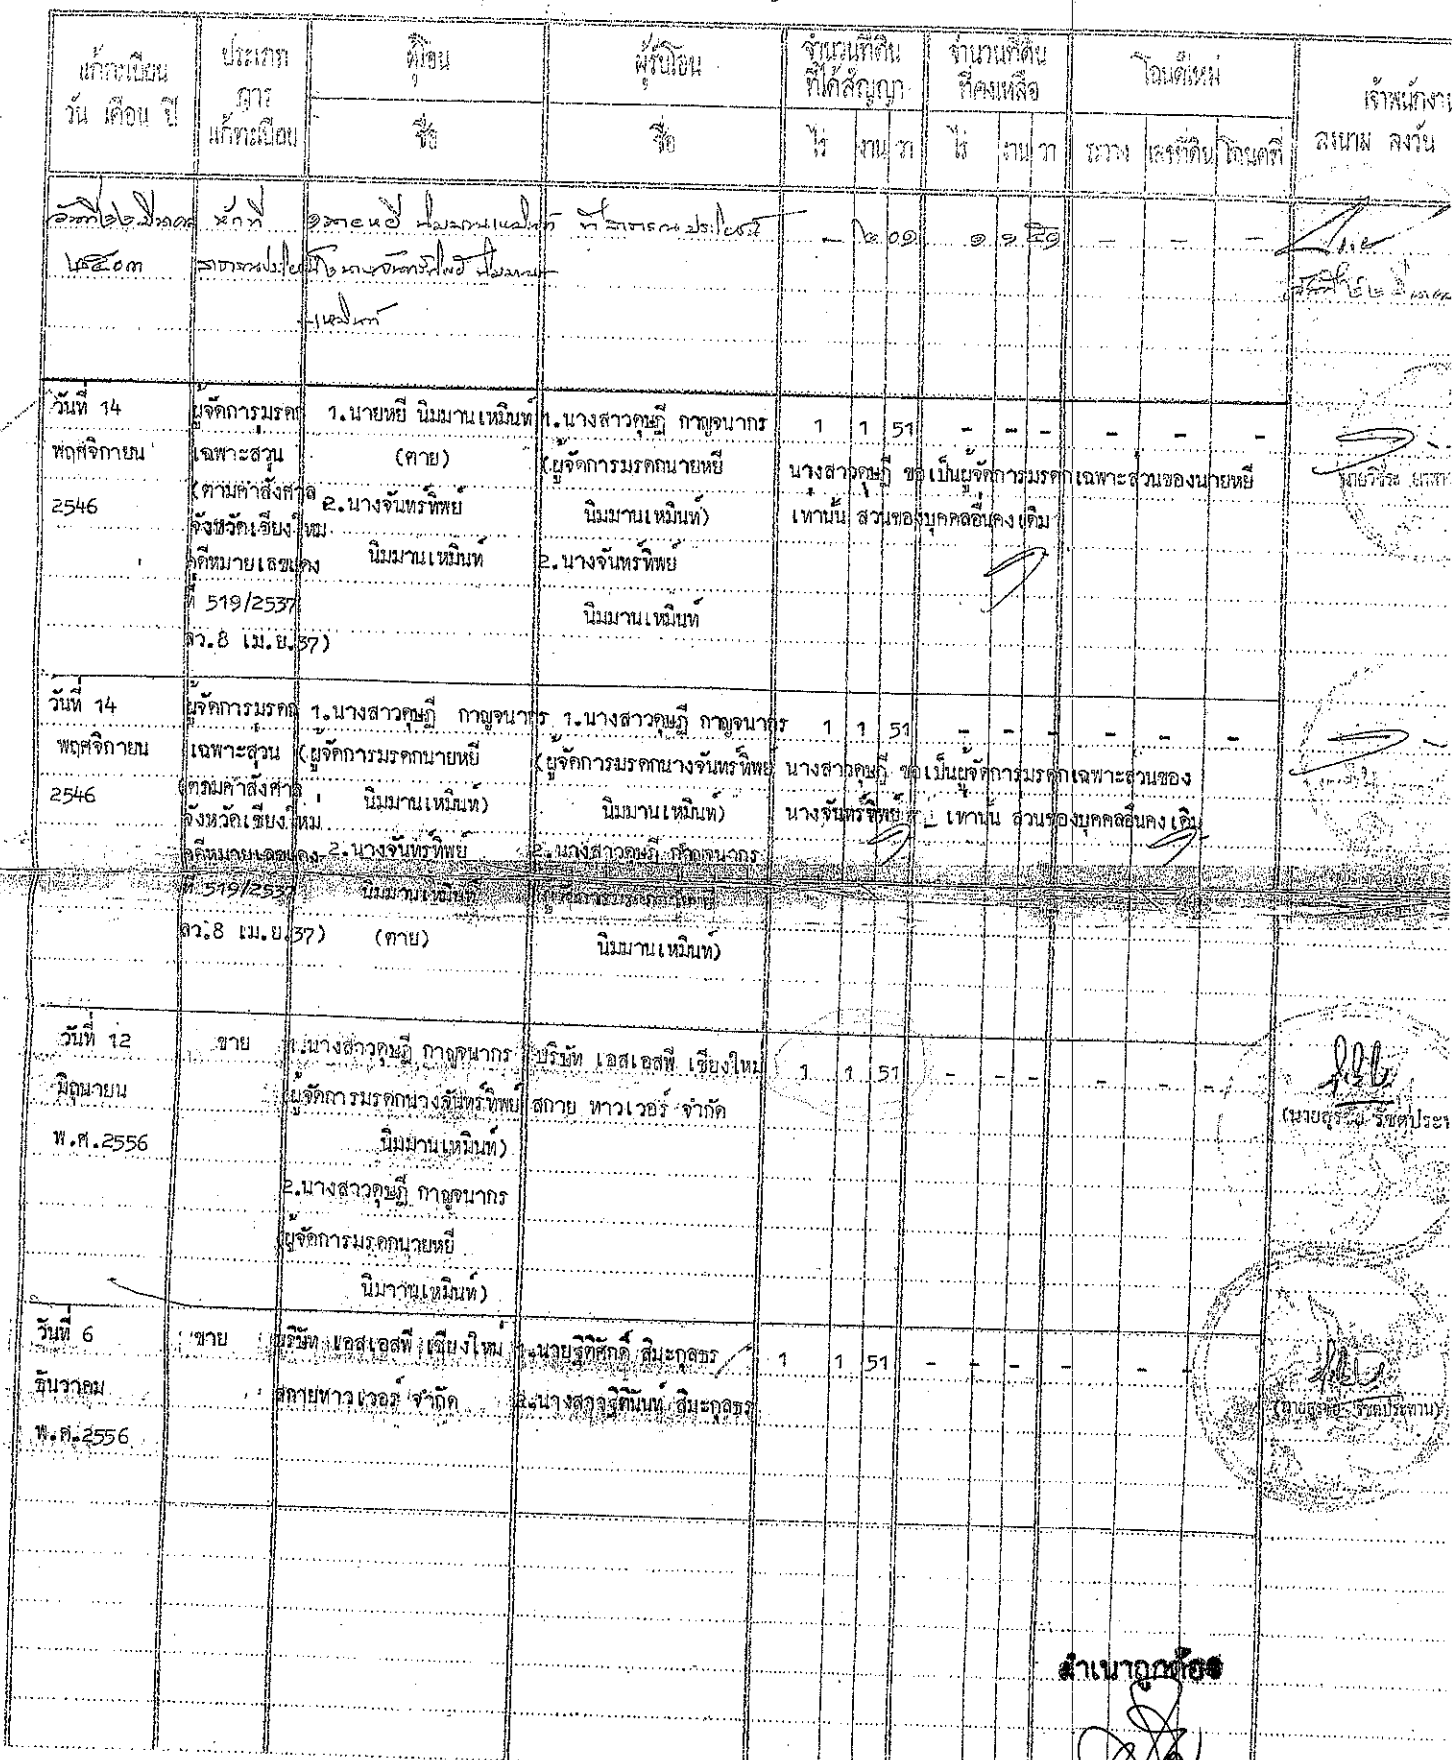 แก้ทะเบียน วัน เดือน ปี
ประเภท การ แก้ทะเบียน
ผู้โอน
ชื่อ
ผู้รับโอน
ชื่อ
จำนวนที่ดิน ที่ได้สัญญา
ไร่ งาน วา
จำนวนที่ดิน ที่คงเหลือ
ไร่ งาน วา
โฉนดใหม่
ระวาง เลขที่ดิน โฉนดที่
ลงนาม ลงวัน
๒๕๐๓
หักที่
ที่สาธารณประโยชน์
- ๒ ๐๑ ๑ ๑ ๕๑ - - -
วันที่ 14
พฤศจิกายน
2546
ผู้จัดการมรดก
เฉพาะส่วน
(ตามคำสั่งศาล
จังหวัดเชียงใหม่
คดีหมายเลขแดง
ที่ 519/2537
ลว.8 เม.ย.37)
1.นายหยี นิมมานเหมินท์
(ตาย)
2.นางจันทร์ทิพย์
นิมมานเหมินท์
1.นางสาวดุษฎี กาญจนากร
(ผู้จัดการมรดกนายหยี
นิมมานเหมินท์)
2.นางจันทร์ทิพย์
นิมมานเหมินท์
1 1 51 - - - - - -
นางสาวดุษฎี ขอเป็นผู้จัดการมรดกเฉพาะส่วนของนายหยี
เท่านั้น ส่วนของบุคคลอื่นคงเดิม
วันที่ 14
พฤศจิกายน
2546
ผู้จัดการมรดก
เฉพาะส่วน
(ตามคำสั่งศาล
จังหวัดเชียงใหม่
คดีหมายเลขแดง
ที่ 519/2537
ลว.8 เม.ย.37)
1.นางสาวดุษฎี กาญจนากร
(ผู้จัดการมรดกนายหยี
นิมมานเหมินท์)
2.นางจันทร์ทิพย์
นิมมานเหมินท์
(ตาย)
1.นางสาวดุษฎี กาญจนากร
(ผู้จัดการมรดกนางจันทร์ทิพย์
นิมมานเหมินท์)
2.นางสาวดุษฎี กาญจนากร
(ผู้จัดการมรดกนายหยี
นิมมานเหมินท์)
1 1 51 - - - - - -
นางสาวดุษฎี ขอเป็นผู้จัดการมรดกเฉพาะส่วนของ
นางจันทร์ทิพย์ เท่านั้น ส่วนของบุคคลอื่นคงเดิม
วันที่ 12
มิถุนายน
พ.ศ.2556
ขาย
1.นางสาวดุษฎี กาญจนากร
(ผู้จัดการมรดกนางจันทร์ทิพย์
นิมมานเหมินท์)
2.นางสาวดุษฎี กาญจนากร
(ผู้จัดการมรดกนายหยี
นิมานเหมินท์)
บริษัท เอสเอสพี เชียงใหม่
สกาย ทาวเวอร์ จำกัด
1 1 51 - - - - - -
วันที่ 6
ธันวาคม
พ.ศ.2556
ขาย
บริษัท เอสเอสพี เชียงใหม่
สกายทาวเวอร์ จำกัด
1.นายฐิติศักดิ์ สิมะกุลธร
2.นางสาวฐิตินันท์ สิมะกุลธร
1 1 51 - - - - - -
สำเนาถูกต้อง